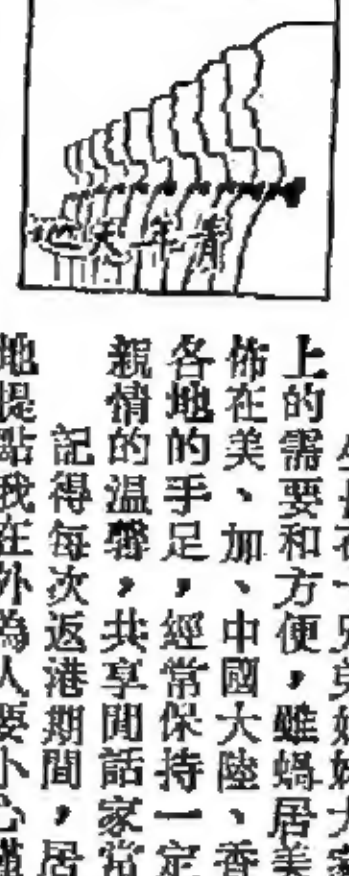 青年天地
在一兄弟姊妹大家
上的需要和方便，雖蝸居美
佈在美、加、中國大陸、香
各地的手足，經常保持一定
親情的温馨，共享閒話家常
記得每次返港期間，居
地提點我在外為人要小心謹